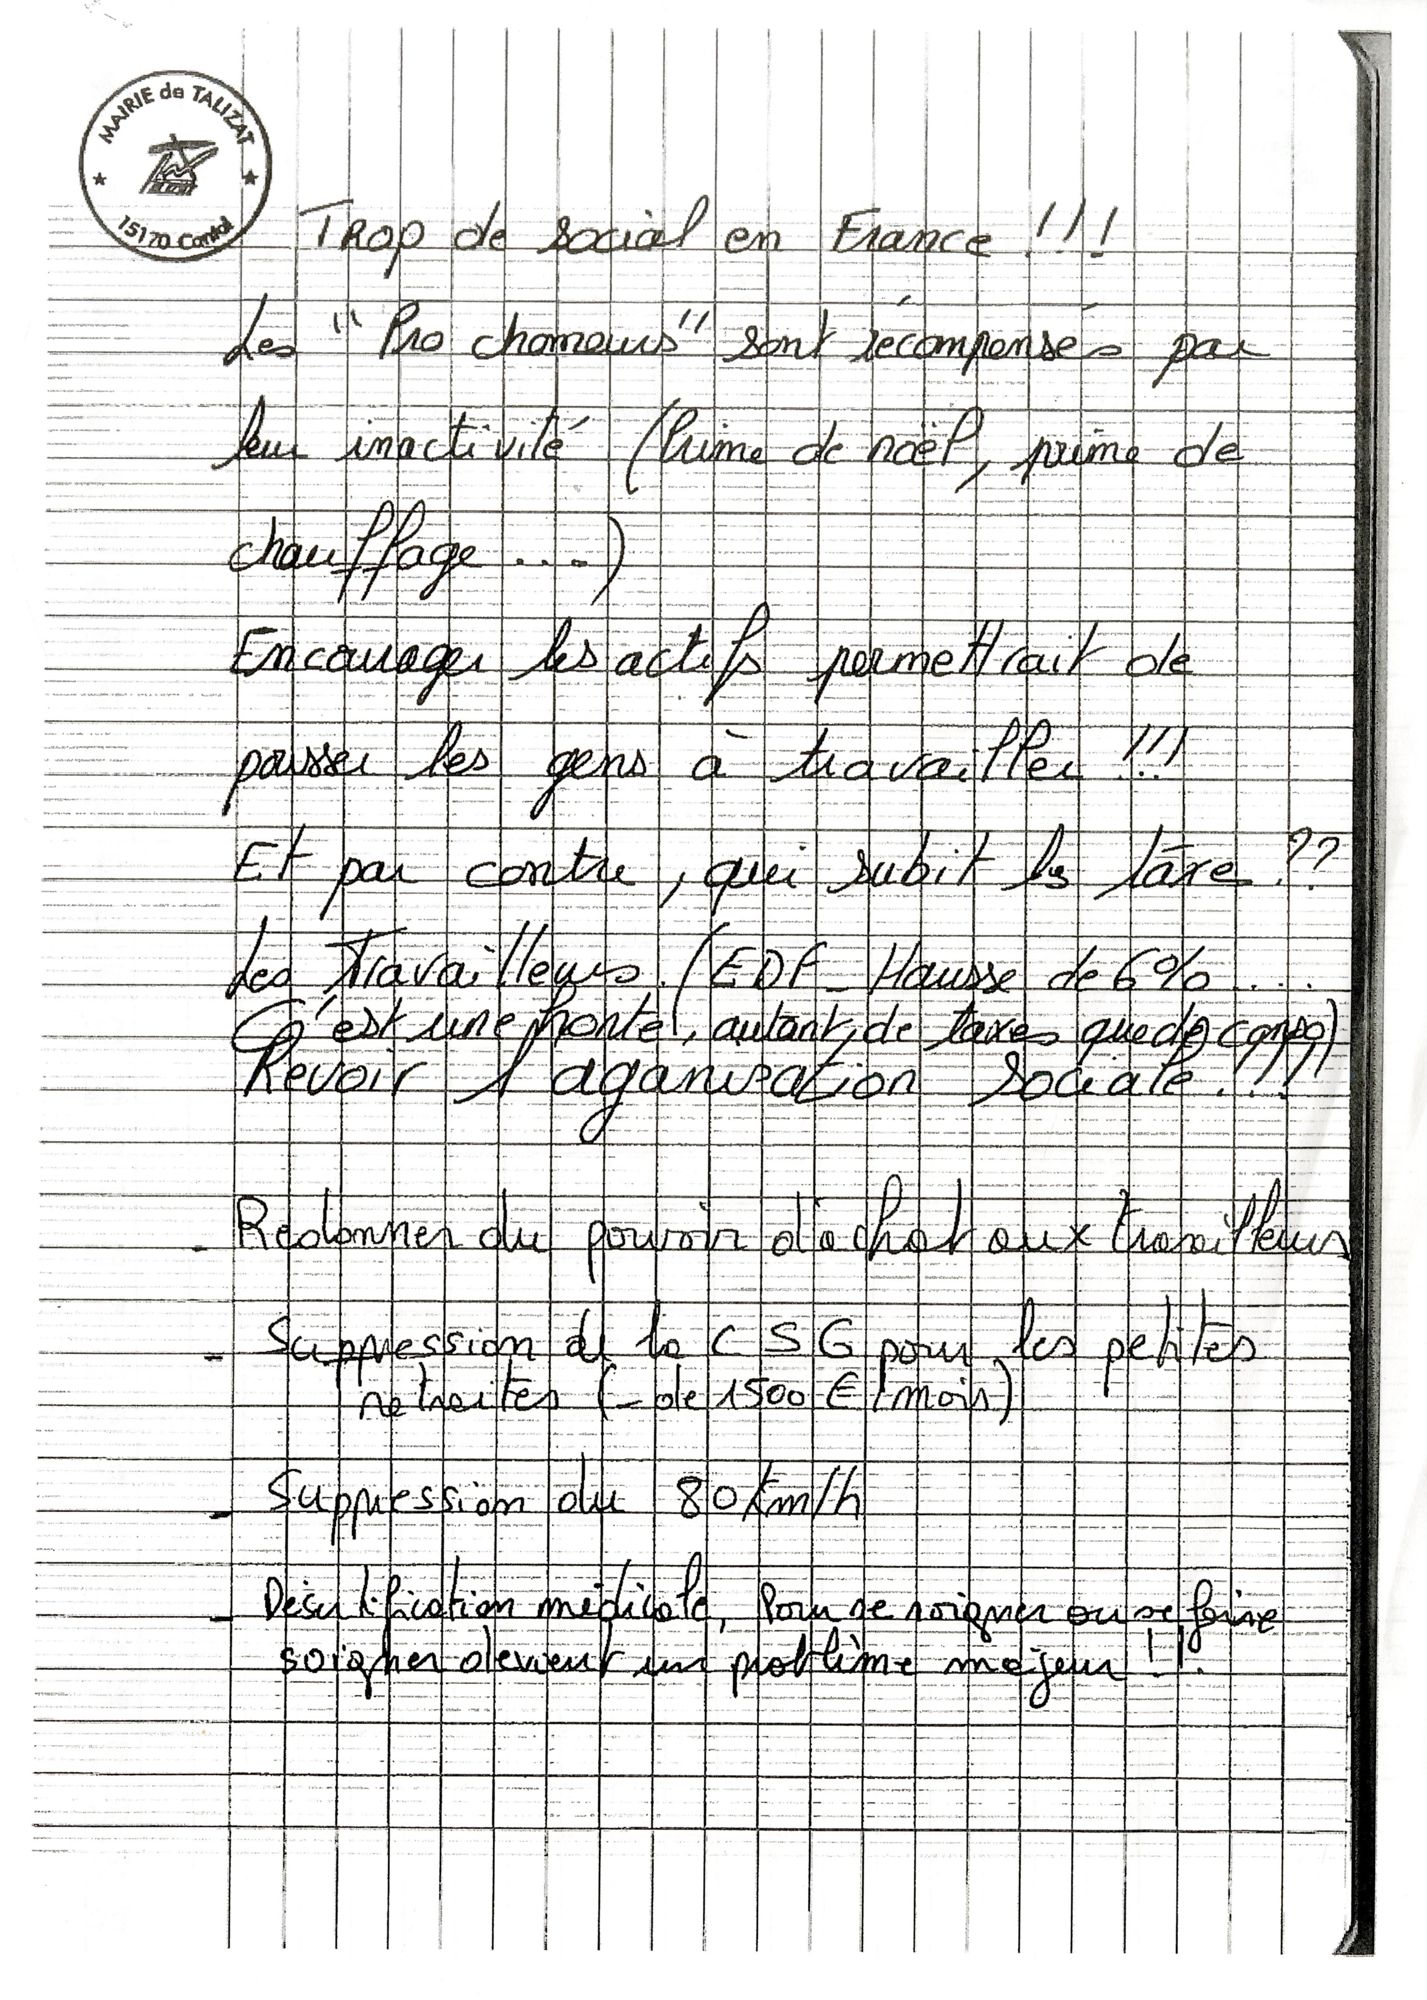 MAIRIE de TALIZAT
15170 Cantal
Trop de social en France !!!
Les "Pro chomeurs" sont récompensés par
leur inactivité (Prime de noël, prime de
chauffage ....)
Encourager les actifs permettrait de
pousser les gens à travailler !!!
Et par contre, qui subit les taxe ??
Les Travailleurs. (EDF - Hausse de 6% ....
C'est une honte, autant de taxes que de conso)
Revoir l'aganisation sociale !!!
- Redonner du pouvoir d'achat aux travailleurs
- Suppression de la CSG pour les petites
retraites (- de 1500 €/mois)
- Suppression du 80 km/h
- Désertification médicale, Pour se soigner ou se faire
soigner devient un problème majeur !!.